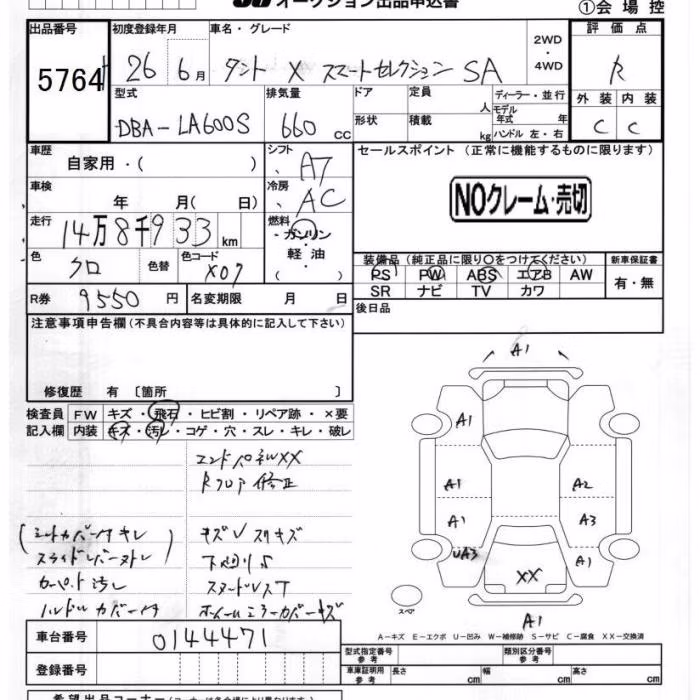 オークション出品申込書
①会場控
出品番号
初度登録年月
車名・グレード
2WD
・4WD
評価点
5764
26 6月
タント X スマートセレクション SA
R
型式
排気量
ドア
定員
人
ディーラー・並行
モデル年式 年
外装
内装
DBA-LA600S
660 cc
形状
積載
kg
ハンドル 左・右
C
C
車歴
自家用・( )
シフト
AT
セールスポイント (正常に機能するものに限ります)
車検
年 月( 日)
冷房
AC
NOクレーム・売切
走行
14万8千933km
燃料
ガソリン
軽油
( )
色
クロ
色替
色コード
X07
装備品 (純正品に限り○をつけてください)
新車保証書
PS
PW
ABS
エアB
AW
有・無
SR
ナビ
TV
カワ
R券
9550円
名変期限 月 日
後日品
注意事項申告欄(不具合内容等は具体的に記入して下さい)
修復歴 有 〔箇所 〕
検査員
FW
キズ・飛石・ヒビ割・リペア跡・×要
記入欄
内装
キズ・汚レ・コゲ・穴・スレ・キレ・破レ
エンドパネルXX
Rフロア修正
キズ
下廻り
カーペット汚レ
ハンドルカバー付
A1
A1
A1
A2
A1
A3
UA3
A1
XX
スペア
A1
A-キズ E-エクボ U-凹み W-補修跡 S-サビ C-腐食 XX-交換済
車台番号
0144471
型式指定番号
参考
類別区分番号
参考
登録番号
車庫証明用
参考
長さ cm
幅 cm
高さ cm
希望出品コーナー